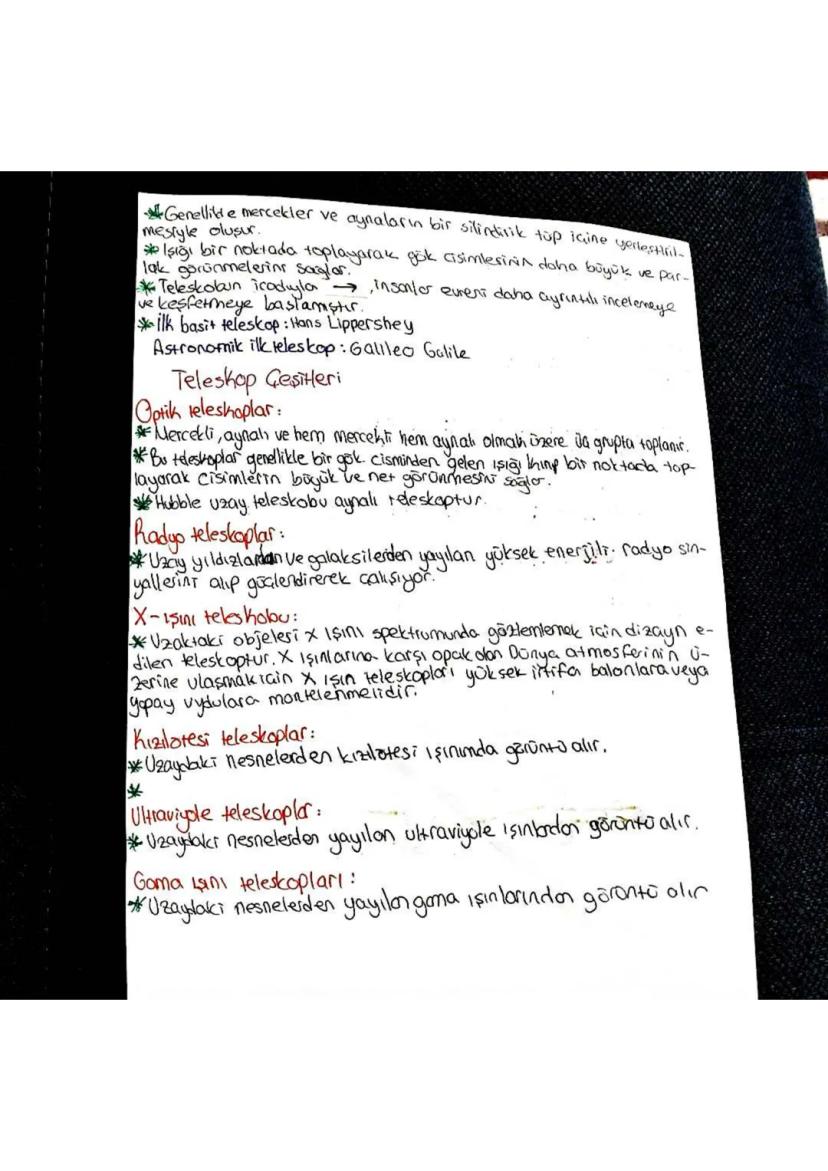 * Genellikle mercekler ve aynaların bir silindirik tüp içine yerleştiril-
mesiyle oluşur.
* Işığı bir noktada toplayarak gök cisimlesinin daha büyük ve par-
lak görünmelerini sağlar.
* Teleskobun icadıyla → , insanlar evreni daha ayrıntılı incelemeye
ve keşfetmeye başlamıştır.
* ilk basit teleskop : Hans Lippershey
Astronomik ilk teleskop : Galileo Galile
Teleskop Çeşitleri
Optik teleskoplar :
* Mercekli, aynalı ve hem mercekli hem aynalı olmak üzere üç grupta toplanır.
* Bu teleskoplar genellikle bir gök cisminden gelen ışığı kırıp bir noktada top-
layarak cisimlerin büyük ve net görünmesini sağlar.
* Hubble uzay teleskobu aynalı teleskoptur.
Radyo teleskoplar :
* Uzay yıldızlardan ve galaksilerden yayılan yüksek enerjili radyo sin-
yallerini alıp güçlendirerek çalışıyor.
X-ışını teleskobu :
* Uzaktaki objelesi X ışını spektrumunda gözlemlemek için dizayn e-
dilen teleskoptur. X ışınlarına karşı opak olan Dünya atmosferinin ü-
zerine ulaşmak için X ışın teleskopları yüksek irtifa balonlara veya
yapay uydulara montelenmelidir.
Kızılötesi teleskoplar :
* Uzaydaki nesnelerden kızılötesi ışınımda görüntü alır.
*
Ultraviyole teleskoplar :
* Uzaydaki nesnelerden yayılan ultraviyole ışınlardan görüntü alır.
Gama ışını teleskopları :
* Uzaydaki nesnelerden yayılan gama ışınlarından görüntü alır